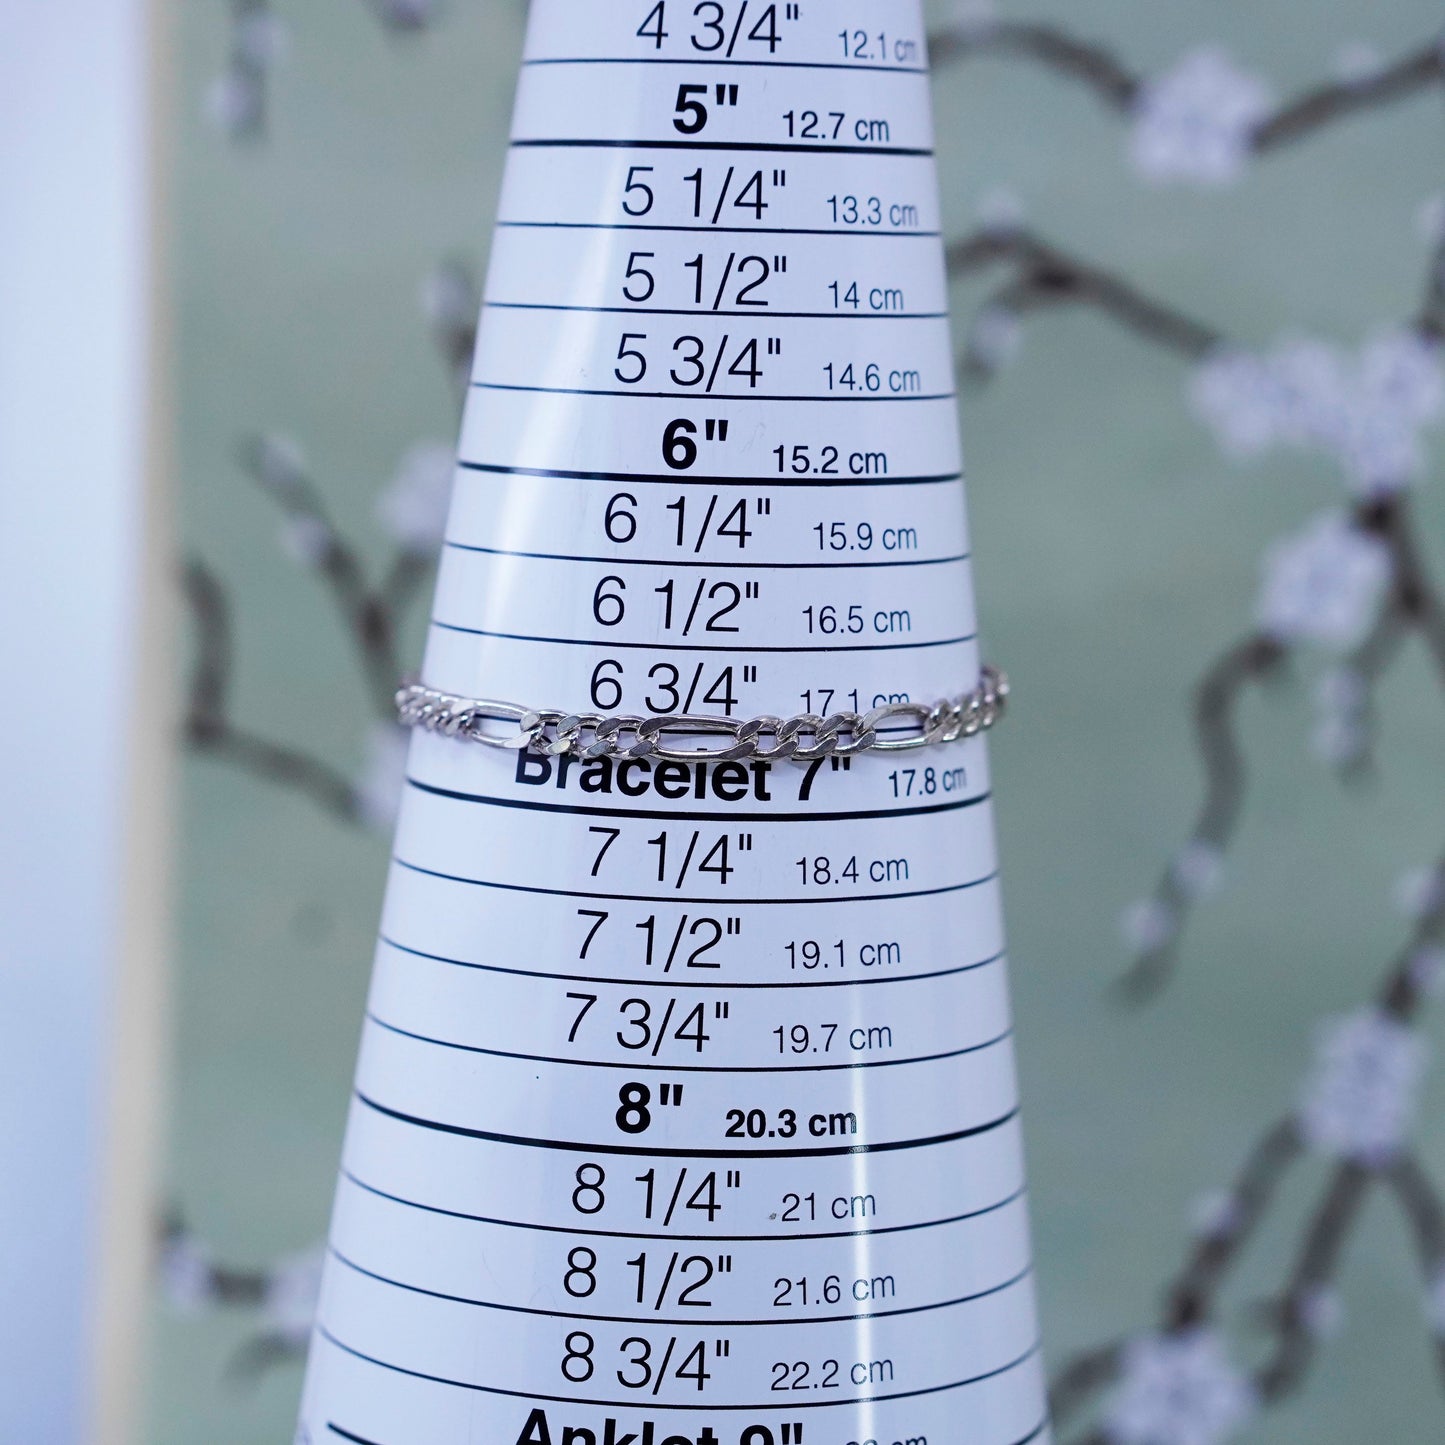 4 3/4" 12.1 cm
5" 12.7 cm
5 1/4" 13.3 cm
5 1/2" 14 cm
5 3/4" 14.6 cm
6" 15.2 cm
6 1/4" 15.9 cm
6 1/2" 16.5 cm
6 3/4" 17.1 cm
Bracelet 7" 17.8 cm
7 1/4" 18.4 cm
7 1/2" 19.1 cm
7 3/4" 19.7 cm
8" 20.3 cm
8 1/4" 21 cm
8 1/2" 21.6 cm
8 3/4" 22.2 cm
Anklet 9" cm